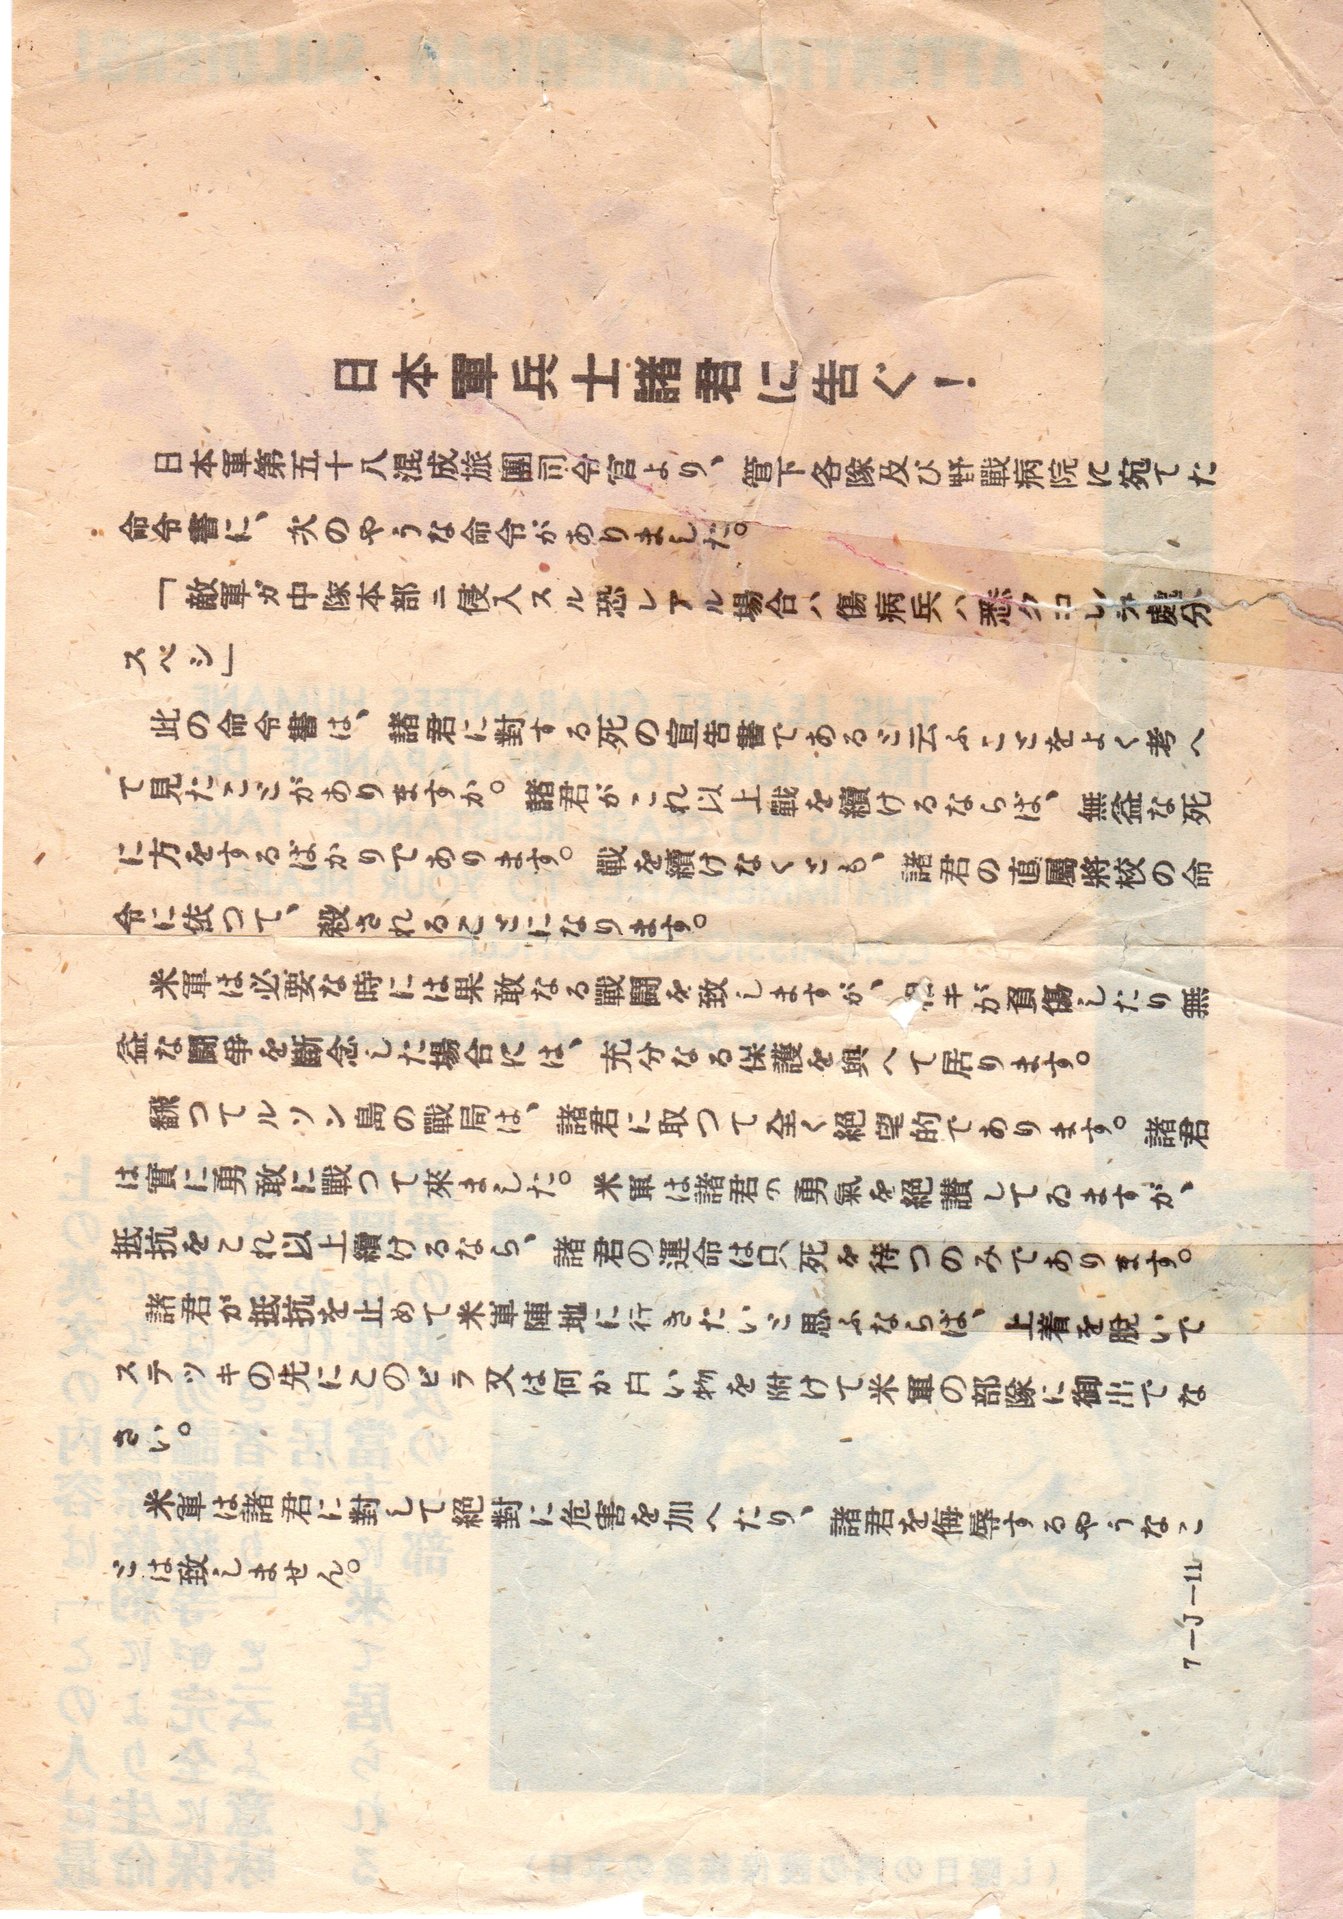 日本軍兵士諸君に告ぐ！
日本軍第五十八混成旅團司令官より、管下各隊及び野戰病院に宛てた
命令書に、次のやうな命令がありました。
「敵軍ガ中隊本部ニ侵入スル恐レアル場合ハ傷病兵ハ悉クコレヲ處分
スベシ」
此の命令書は、諸君に對する死の宣告書であると云ふことをよく考へ
て見たことがありますか。諸君がこれ以上戰を續けるならば、無益な死
に方をするばかりであります。戰を續けなくとも、諸君の直屬將校の命
令に依つて、殺されることになります。
米軍は必要な時には果敢なる戰鬪を致しますが、が負傷したり無
益な鬪爭を斷念した場合には、充分なる保護を與へて居ります。
飜つてルソン島の戰局は、諸君に取つて全く絕望的であります。諸君
は實に勇敢に戰つて來ました。米軍は諸君の勇氣を絕讃してゐますが、
抵抗をこれ以上續けるなら、諸君の運命は只、死を待つのみであります。
諸君が抵抗を止めて米軍陣地に行きたいと思ふならば、上着を脫いで
ステツキの先にこのビラ又は何か白い物を附けて米軍の部隊に御出でな
さい。
米軍は諸君に對して絕對に危害を加へたり、諸君を侮辱するやうなこ
とは致しません。
7―J―11
ATTENTION AMERICAN SOLDIERS!
THIS LEAFLET GUARANTEES HUMANE
TREATMENT TO ANY JAPANESE DE-
SIRING TO CEASE RESISTANCE. TAKE
HIM IMMEDIATELY TO YOUR NEAREST
COMMISSIONED OFFICER.